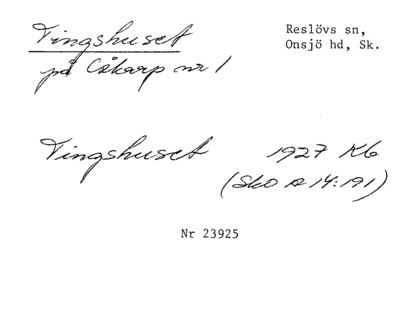 Tingshuset
på Cåkarp nr 1
Reslövs sn,
Onsjö hd, Sk.
Tingshuset 1927 Kb
(Sko A 14:191)
Nr 23925